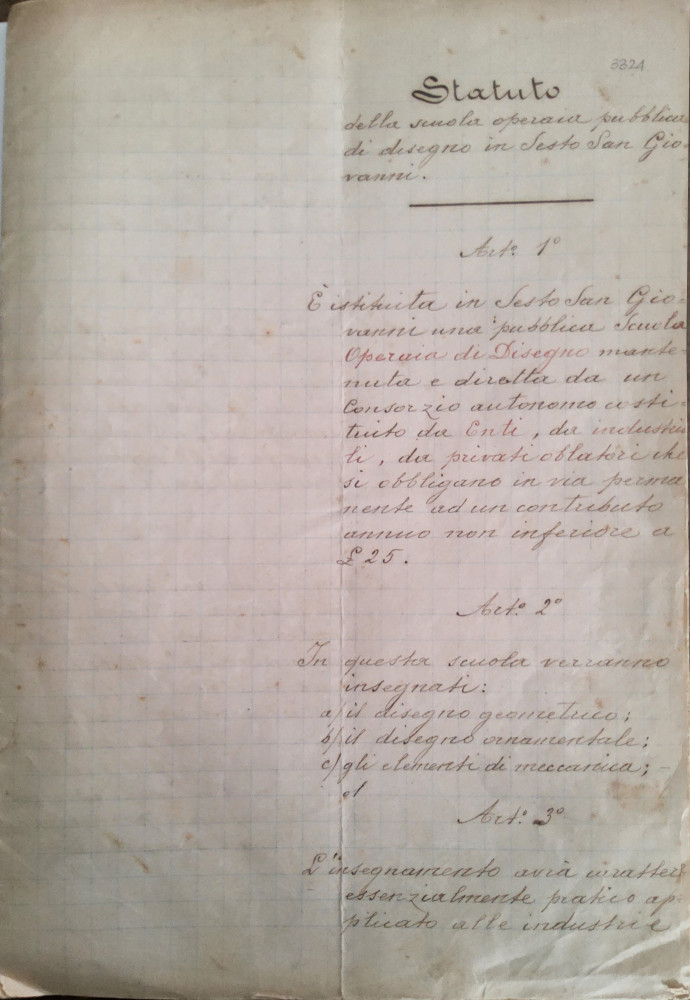 3321
Statuto
della scuola operaia pubblica
di disegno in Sesto San Gio-
vanni.
Art.º 1º
È istituita in Sesto San Gio-
vanni una pubblica Scuola
Operaia di Disegno mante-
nuta e diretta da un
Consorzio autonomo costi-
tuito da Enti, da industria
li, da privati oblatori che
si obbligano in via perma
nente ad un contributo
annuo non inferiore a
£ 25.
Art.º 2º
In questa scuola verranno
insegnati:
a/ il disegno geometrico;
b/ il disegno ornamentale;
c/ gli elementi di meccanica; -
Art.º 3º
L'insegnamento avrà caratter
essenzialmente pratico ap-
plicato alle industrie